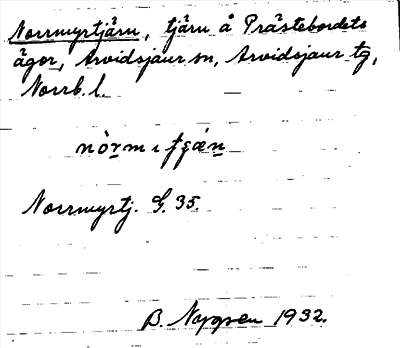 Norrmyrtjärn, tjärn å Prästebordets
ägor, Arvidsjaur sn, Arvidsjaur tg,
Norrb. l.
Norrmyrtj. G. 35.
B. 1932.